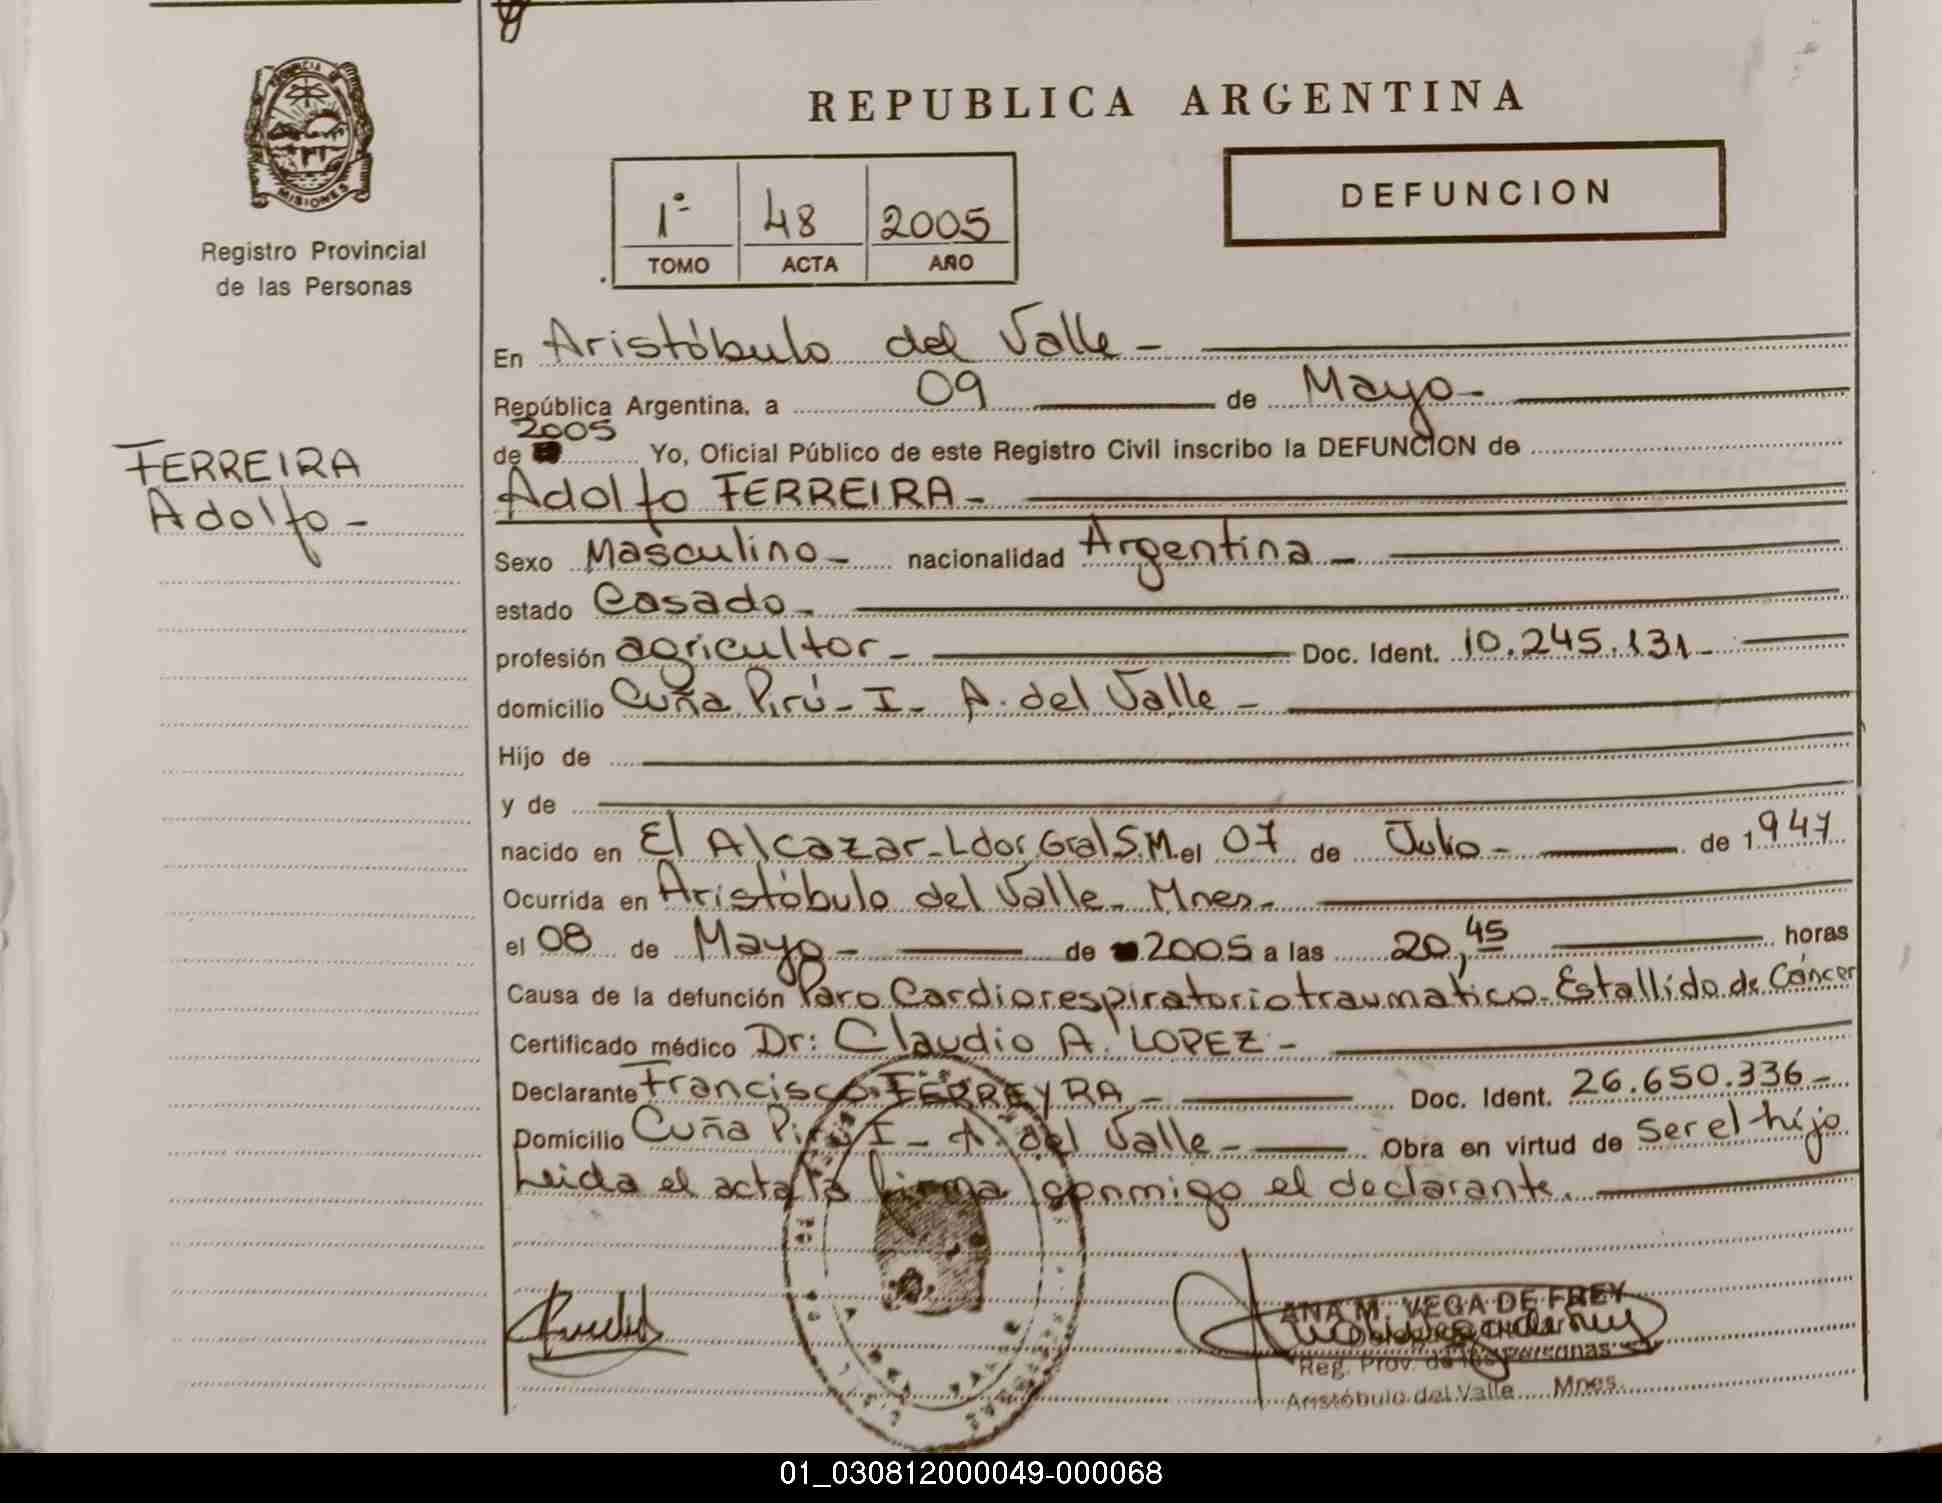 REPUBLICA ARGENTINA
PROVINCIA DE
MISIONES
Registro Provincial
de las Personas
1º 48 2005
TOMO ACTA AÑO
DEFUNCION
En Aristóbulo del Valle -
República Argentina, a 09 de Mayo -
de 2005 Yo, Oficial Público de este Registro Civil inscribo la DEFUNCION de
FERREIRA
Adolfo -
Adolfo FERREIRA -
Sexo Masculino - nacionalidad Argentina -
estado Casado -
profesión agricultor - Doc. Ident. 10.245.131 -
domicilio Cuña Pirú - I - A. del Valle -
Hijo de
y de
nacido en El Alcazar - Ldor. Gral S.M. el 07 de Julio - de 1947
Ocurrida en Aristóbulo del Valle - Mnes -
el 08 de Mayo - de 2005 a las 20,45 horas
Causa de la defunción Paro Cardiorespiratorio traumatico - Estallido de Cáncer
Certificado médico Dr: Claudio A. LOPEZ -
Declarante Francisco FERREYRA - Doc. Ident. 26.650.336 -
Domicilio Cuña Pirú I - A. del Valle - Obra en virtud de ser el hijo
Leida el acta la firma conmigo el declarante.
ANA M. VEGA DE FREY
Reg. Prov. de las Personas
Aristóbulo del Valle Mnes.
01_030812000049-000068